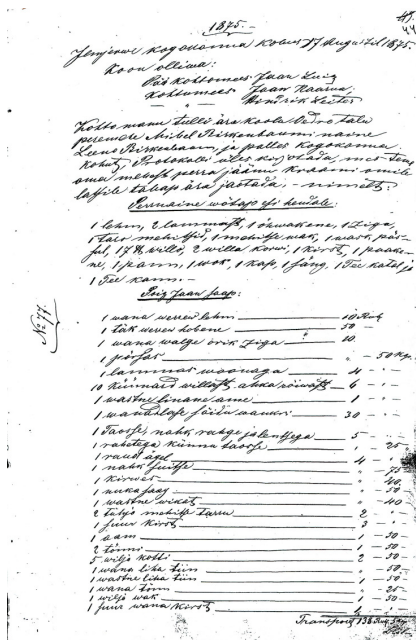 1875.
44
kogokonna kohus 17 Augustil 1875.
Koon olliwa:
Pä kohtomees Jaan Zuig
Kohtumees Jaan Kaarna
" Hindrik Zeiter
Kohto manu tulli ära koolu
peremehe Mihel Birkenbaumi naene
Leeno Birkenbaum, ja palles kogokonna
Kohut, Protokolli üles kirjotada, mes
oma mehest perra jäänu kraami omile
latsile tahap ära jaotada, - nimelt:
Perrenaine wõtap esi hendale:
1 lehm, 2 lammast, 1 õhwakene, 1 Ziga,
1 mehitsid, 1 mehitse wak, 1
17 willo, 2 willa korwi, 1 Kirst, 1
ne, 1 pann, 1 wok, 1 Kap, 1 säng, 1 Tee katel ja
1 Tee kann.
No 77
Poig Jaan saap:
1 wana werrew lehm 10 Rub
1 tük werrew hobene 50 -
1 wana walge orik Ziga " 10.
1 põrsas " - 50 Kp.
1 lammas woonaga " 4 -
10 Künnard willast 6 -
1 wastne linane ame 1 -
1 sõidu wankri 30 -
1 Taosse, nahk rahge jalussega 5 -
1 rahetega Künnu taosse " - 25 -
1 raud ägel 4 -
1 nahk suitse " - 75
1 Kirwes " - 40.
1 nukasaag " - 50 -
1 wastne wikat " - 40
2 tühjo mehitse tarru 2 -
1 suur Kirst 3 -
1 aam 1 - 50 -
2 tõnni 1 - 50 -
5 wilja kotti 2 - 50 -
1 wana liha tiin - 50 -
1 wastne liha tiin 1 - 50 -
1 wana tõnn - 25 -
1 wilja wak - 50 -
1 suur wana Kirst 1 -
Transport 136 Rub